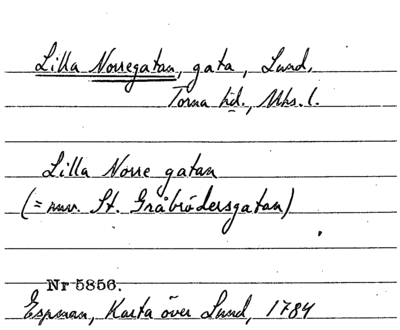 Lilla Norregatan, gata, Lund,
Torna hd., Mhs. l.
Lilla Norre gatan
(= nuv. St. Gråbrödersgatan)
Nr 5856.
Espman, Karta över Lund, 1784